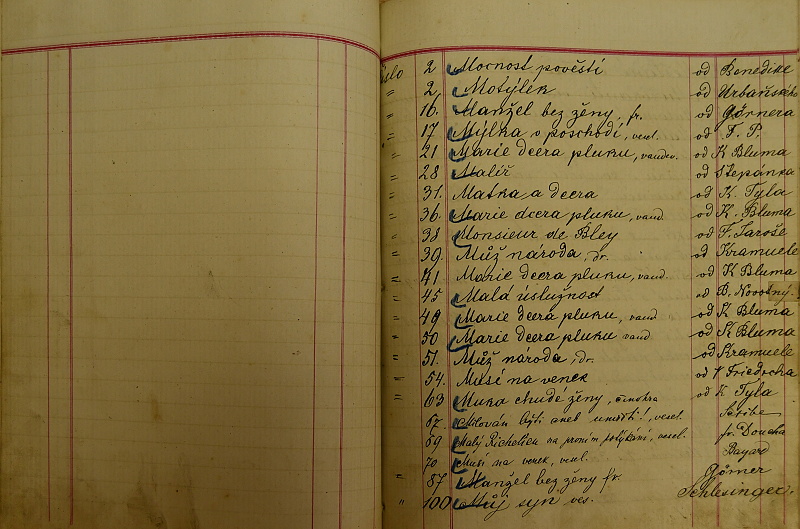 číslo 2 Mocnost pověsti od Benedikt
" 2, Motýlek od Urbańského
" 16. Manžel bez ženy, fr. od Görnera
" 17 Mýlka v poschodí, vesel. od F. P.
" 21 Marie dcera pluku, vaudev. od K Bluma
" 28 Malíř od Štěpánka
" 31. Matka a dcera od K. Tyla
" 36. Marie dcera pluku, vaud. od K. Bluma
" 38 Monsieur de Bley od F. Jaroše
" 39. Můž národa, dr. od Kramuele
" 41 Marie dcera pluku, vaud. od K Bluma
" 45 Malá úslužnost od B. Novotný
" 49 Marie dcera pluku, vaud od K Bluma
" 50 Marie dcera pluku vaud od K Bluma
" 51. Můž národa, dr. od Kramuele
" 54. Musí na venek od Friedricha
" 63 Muka chudé ženy, činohra od K Tyla
67. Milován býti aneb umříti!, vesel. Scribe
69 Malý Richelieu na prvním potýkání, vesel. fr. Doucha
70 Musí na venek, vesel. Bayard
" 87 Manžel bez ženy fr. Görner
" 100 Můj syn ves. Schlesinger.